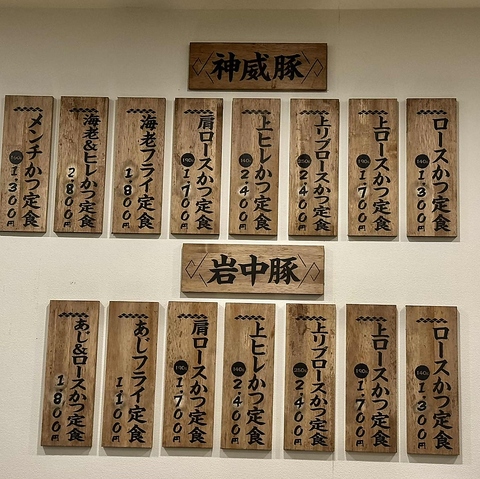 神威豚
ロースかつ定食
140g 1,300円
上ロースかつ定食
190g 1,700円
上リブロースかつ定食
250g 2,400円
上ヒレかつ定食
140g 2,400円
肩ロースかつ定食
190g 1,700円
海老フライ定食
1,800円
海老&ヒレかつ定食
2,800円
メンチかつ定食
1,300円
岩中豚
ロースかつ定食
140g 1,300円
上ロースかつ定食
190g 1,700円
上リブロースかつ定食
250g 2,400円
上ヒレかつ定食
140g 2,400円
肩ロースかつ定食
190g 1,700円
あじフライ定食
1,100円
あじ&ロースかつ定食
1,800円